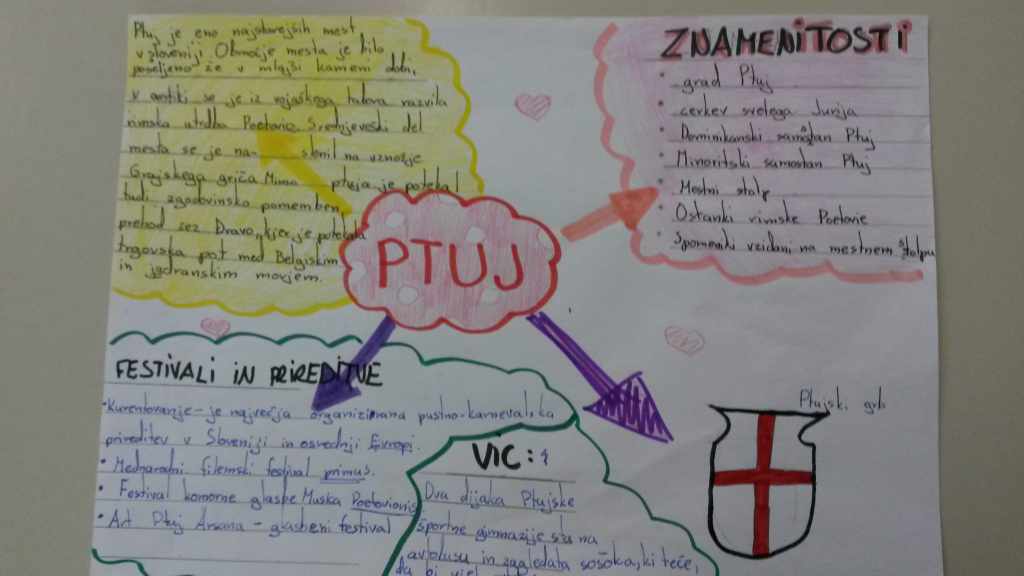 Ptuj je eno najstarejših mest
v Sloveniji Območje mesta je bilo
poseljeno že v mlajši kameni dobi,
v antiki se je iz vojaškega tabora razvila
rimska utrdba Poetovio. Srednjeveški del
mesta se je na- slonil na vznožje
Grajskega griča Mimo ptuja je potekal
tudi zgodovinsko pomemben
prehod čez Dravo, kjer je potekala
trgovska pot med Belgiskim
in jadranskim morjem.
PTUJ
ZNAMENITOSTI
• grad Ptuj
• cerkev svetega Jurija
• Dominikanski samostan Ptuj
• Minoritski samostan Ptuj
• Mestni stolp
• Ostanki rimske Poetovie
• Spomeniki vzidani na mestnem stolpu
FESTIVALI IN PRIREDITVE
• Kurentovanje - je največja organizirana pustno-karnevalska
prireditev v Sloveniji in osrednji Evropi.
• Mednarodni filemski festival primus.
• Festival komorne glasbe Muska Poetovionis
• Art Ptuj Arsana - glasbeni festival
VIC:
Dva dijaka Ptujske
športne gimnazije sta na
avtobusu in zagledata sošolca, ki teče,
da bi
Ptujski grb